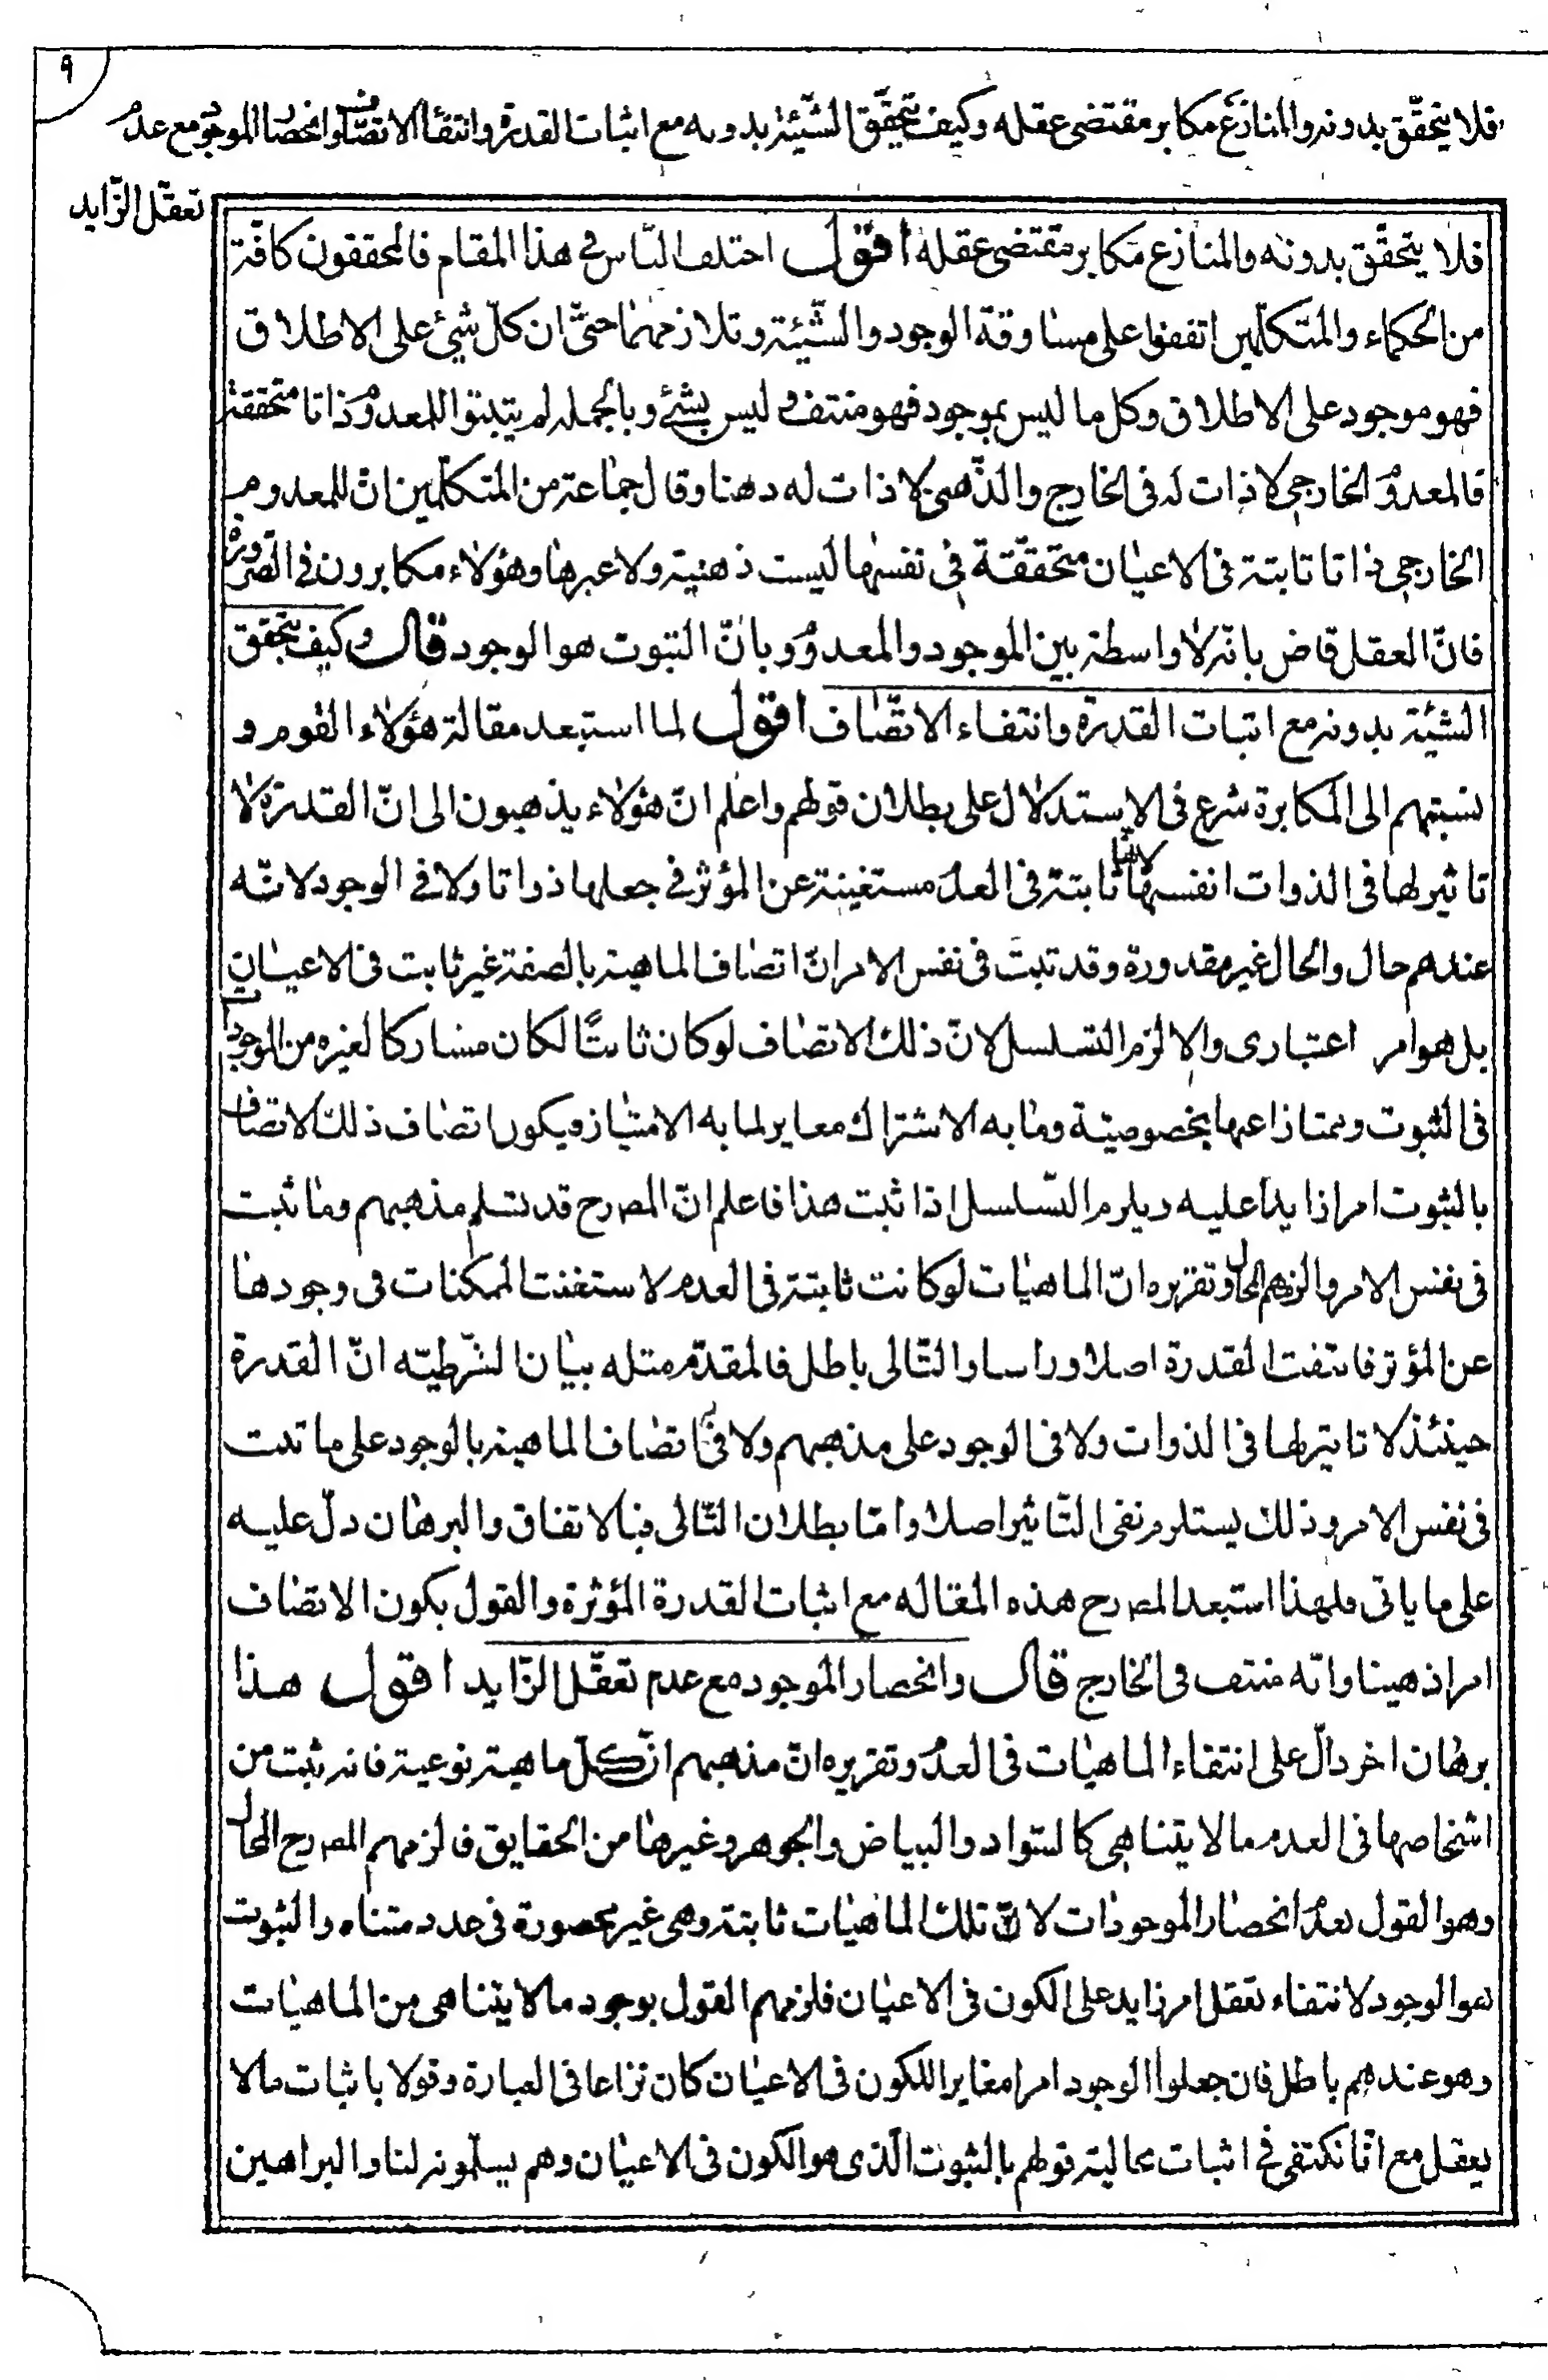 ٩
فلا يتحقّق بدونه والمنازع مكابر مقتضى عقله وكيف تتحقّق الشّيئيّة بدونه مع اثبات القدرة وانتفاء الاتصاف وانحصار الموجود مع عدم
تعقّل الزّايد
فلا يتحقّق بدونه والمنازع مكابر مقتضى عقله اقول اختلف النّاس فى هذا المقام فالمحققون كافّة
من الحكماء والمتكلّمين اتفقوا على مساوقة الوجود والشّيئية وتلازمهما حتّى ان كلّ شيئ على الاطلاق
فهو موجود على الاطلاق وكل ما ليس بموجود فهو منتف وليس بشئ وبالجمله لم يتبتوا للمعدوم ذاتا متحققة
فالمعدوم الخارجى لا ذات له فى الخارج والذّهنى لا ذات له دهنا وقال جماعة من المتكلّمين انّ للمعدوم
الخارجى ذاتا تابتة فى الاعيان متحققّة فى نفسها ليست ذهنية ولا غيرها وهؤلاء مكابرون فى الضّرورة
فانّ العقل قاض بانّه لا واسطة بين الموجود والمعدوم وبانّ التبوت هو الوجود قال وكيف يتحقق
الشيئية بدونه مع اتبات القدرة وانتفاء الاتّصاف اقول لما استبعد مقالة هؤلاء القوم و
نسبتهم الى المكابرة شرع فى الاستدلال على بطلان قولهم واعلم انّ هؤلاء يذهبون الى انّ القدرة لا
تاثير لها فى الذوات انفسها لانها ثابتة فى العدم مستغينة عن المؤثر فى جعلها ذواتا ولا فى الوجود لانّه
عندهم حال والحال غير مقدورة وقد تبت فى نفس الامر انّ اتصاف الماهية بالصفة غير ثابت فى الاعيان
بل هو امر اعتبارى والا لزم التسلسل لانّ ذلك الاتصاف لو كان ثابتًا لكان مشاركا لغيره من الموجودات
فى الثبوت وممتازا عنها بخصوصيّة وما به الاشتراك معاير لما به الامتياز ويكون اتصاف ذلك الاتصاف
بالثبوت امرا زايدا عليه ويلزم التّسلسل اذا ثبت هذا فاعلم انّ المص رح قد تسلم مذهبهم وما ثبت
فى نفس الامر والزمهم المحال وتقريره انّ الماهيات لو كانت ثابتة فى العدم لاستغنت الممكنات فى وجودها
عن المؤتر فانتفت القدرة اصلا وراسا والتّالى باطل فالمقدّم متله بيان الشّرطيّه انّ القدرة
حينئذ لا تاتير لها فى الذوات ولا فى الوجود على مذهبهم ولا فى اتصاف الماهية بالوجود على ما تبت
فى نفس الامر وذلك يستلزم نفى التّاثير اصلا وامّا بطلان التّالى فبالاتفاق والبرهان دلّ عليه
على ما ياتى فلهذا استبعد المص رح هذه المقاله مع اثبات القدرة المؤثرة والقول بكون الاتصاف
امرا ذهينا وانّه منتف فى الخارج قال وانحصار الموجود مع عدم تعقّل الزّايد اقول هذا
برهان اخر دالّ على انتفاء الماهيات فى العدم وتقريره انّ مذهبهم انّ كلّ ماهية نوعية فانه يثبت من
اشخاصها فى العدم ما لا يتناهى كالسّواد والبياض والجوهر وغيرها من الحقايق فالزمهم المص رح المحال
وهو القول بعدم انحصار الموجودات لانّ تلك الماهيات ثابتة وهى غير محصورة فى عدد متناه والثبوت
هو الوجود لانتفاء تعقل امر زايد على الكون فى الاعيان فلزمهم القول بوجود ما لا يتناهى من الماهيات
وهو عندهم باطل فان جعلوا الوجود امرا مغايرا للكون فى الاعيان كان نزاعا فى العبارة وقولا باثبات ما لا
يعقل مع انّا نكتفى فى اثبات محالية قولهم بالثبوت الّذى هو الكون فى الاعيان وهم يسلمونه لنا والبراهين